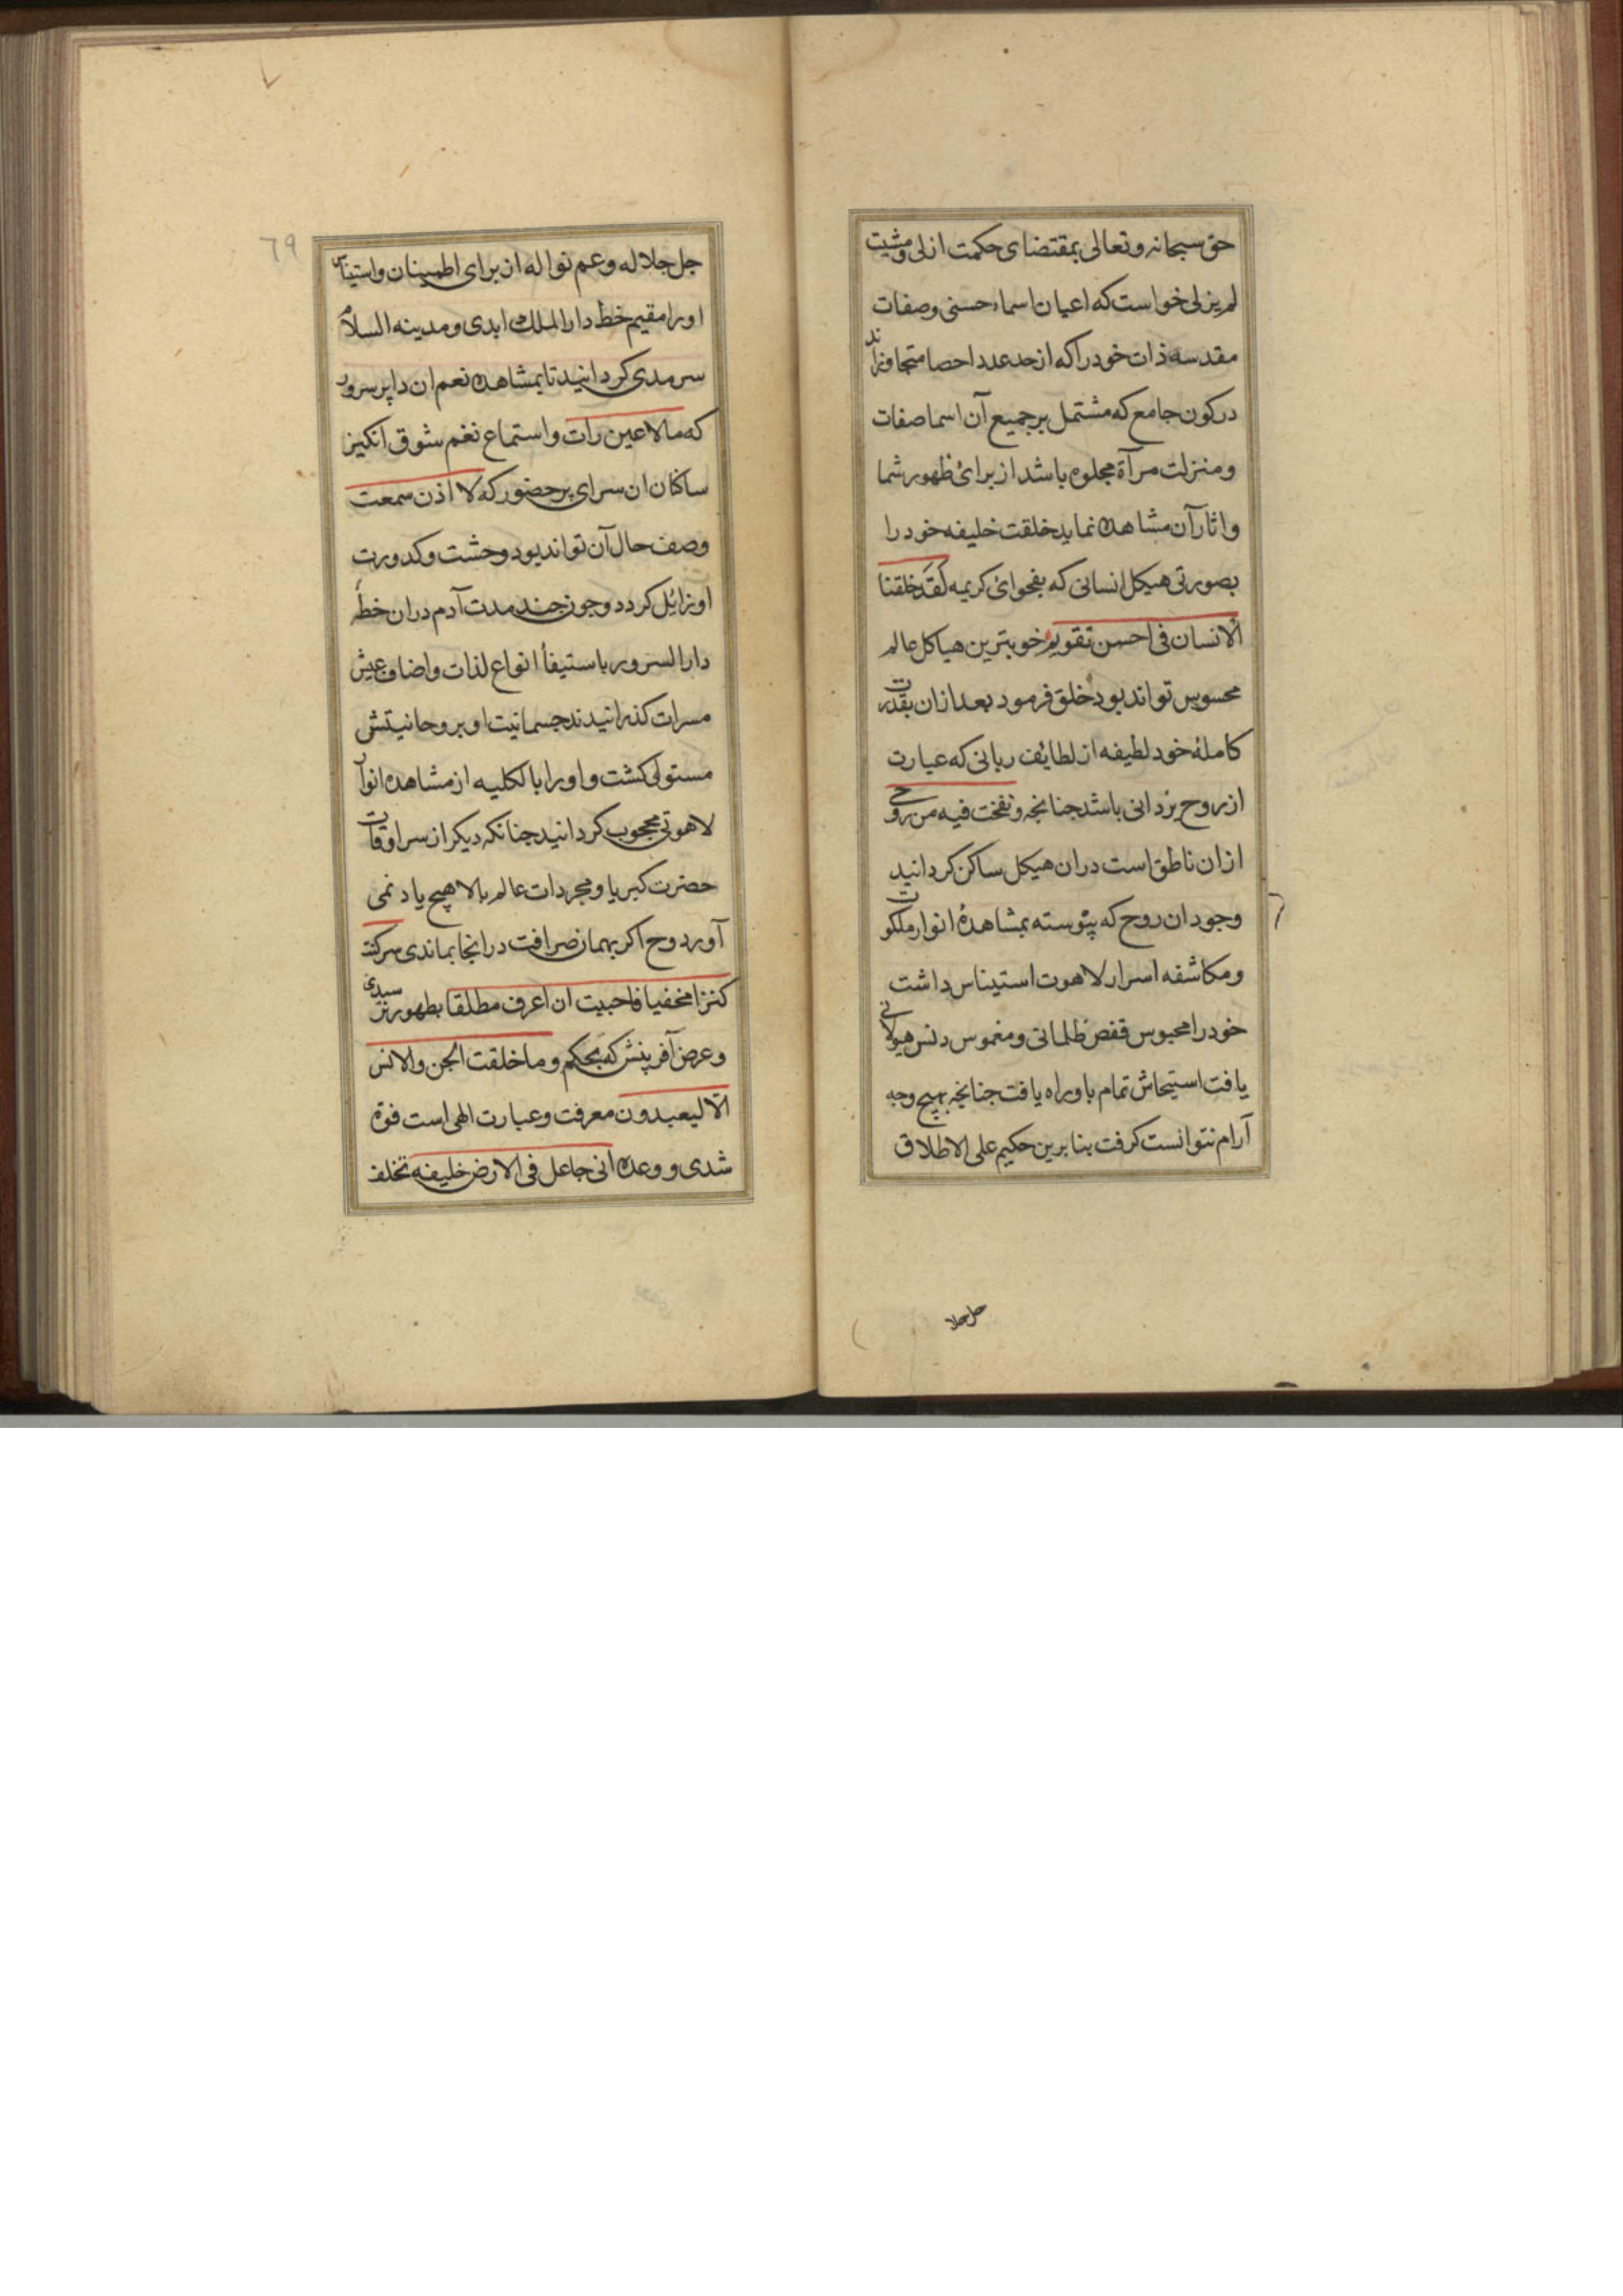 حق سبحانه و تعالی بمقتضای حکمت ازلی و مشیت
لم یزلی خواست که اعیان اسماء حسنی و صفات
مقدسه ذات خود را که از حد عدد احصا متجاوزاند
در کون جامع که مشتمل بر جمیع آن اسما صفات
و منزلت مرآة مجلوه باشد از برائ ظهور شما
و اثار آن مشاهده نماید خلقت خلیفه خود را
بصورتی هیکل انسانی که بفحوائ کریمه لقد خلقنا
الانسان فی احسن تقویم خوبترین هیاکل عالم
محسوس تواند بود خلق فرمود بعد ازان بقدرت
کاملهٔ خود لطیفه از لطایف ربانی که عبارت
از روح یزدانی باشد جنانجه و نفخت فیه من روحی
ازان ناطق است دران هیکل ساکن کردانید
وجود ان روح که پیوسته بمشاهدهٔ انوار ملکوت
و مکاشفه اسرار لاهوت استیناس داشت
خود را محبوس قفص ظلمانی و مغموس دنس هیولانی
یافت استیحاش تمام باو راه یافت جنانجه بهیج وجه
آرام نتوانست کرفت بنابرین حکیم علی الاطلاق
جل جلا
٦٩
جل جلاله و عم نواله از برای اطمینان و استیناس
او را مقیم خط دار الملک ابدی و مدینه السلام
سرمدی کردانید تا بمشاهده نعم ان دا پر سرور
که ما لا عین رات و استماع نغم شوق انکیز
ساکنان ان سرای پر حضور که لا اذن سمعت
وصف حال آن تواند بود وحشت و کدورت
او زائل کردد و جون جند مدت آدم دران خطهٔ
دار السرور باستیفأ انواع لذات و اضاف عیش
مسرات کذرانیدند جسمانیت او بر وحانیتش
مستولی کشت و او را بالکلیه از مشاهده انوار
لاهوتی محجوب کردانید جنانکه دیکر از سراوقات
حضرت کبریا و مجردات عالم بالا هیچ یاد نمی
آورد و ح اکر بهمان صرافت در انجا بماندی سر کنت
کنزا مخفیا فاحببت ان اعرف مطلقا بطهور نرسیدی
و عرض آفرینش که بحکم و ما خلقت الجن و الانس
الا لیعبدون معرفت و عبارت الهی است فوة
شدی و وعده انی جاعل فی الارض خلیفه تخلف